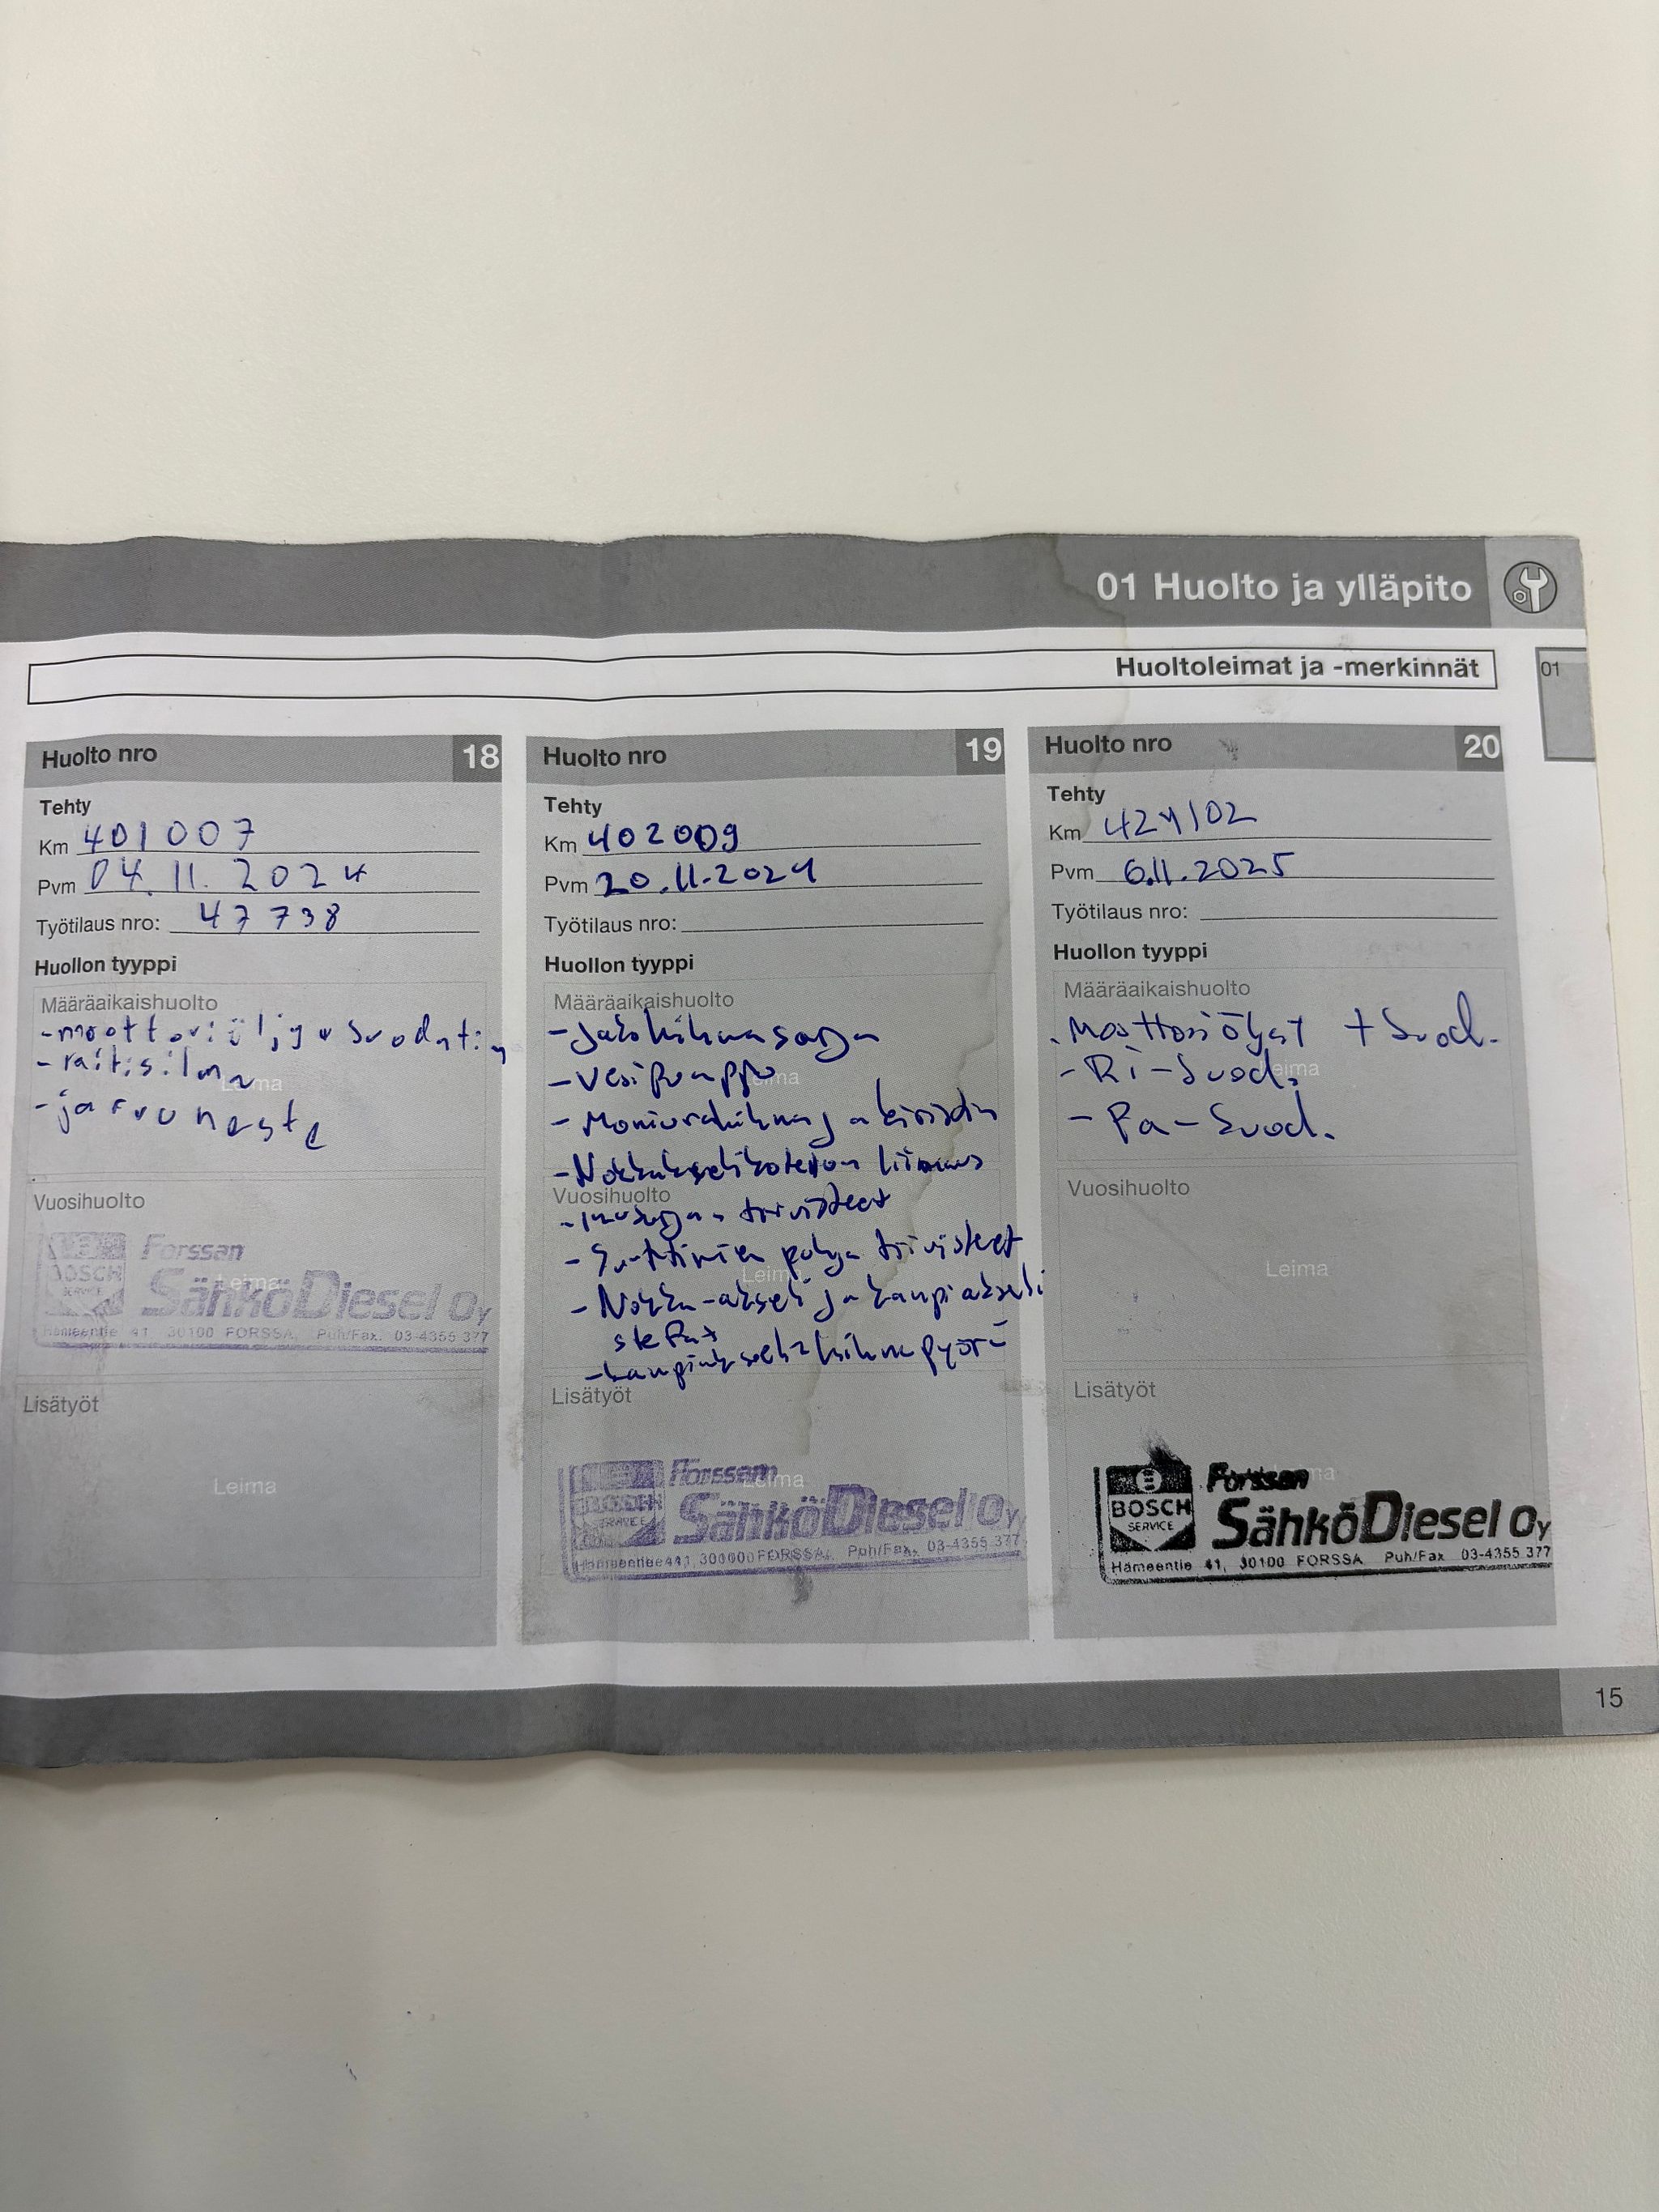 01 Huolto ja ylläpito
Huoltoleimat ja -merkinnät
01
Huolto nro 18
Tehty
Km 401007
Pvm 04.11.2024
Työtilaus nro: 47738
Huollon tyyppi
Määräaikaishuolto
-moottoriöljy + suodatin
- raitisilma
Leima
-jarruneste
Vuosihuolto
BOSCH SERVICE
Forssan
SähköDiesel Oy
Leima
Hämeentie 41, 30100 FORSSA, Puh/Fax. 03-4355 377
Lisätyöt
Leima
Huolto nro 19
Tehty
Km 402009
Pvm 20.11.2024
Työtilaus nro:
Huollon tyyppi
Määräaikaishuolto
-Jakohihnasarja
-Vesipumppu
Leima
-Moniurahihna ja kiristin
-Nokkakselikotelon liimaus
Vuosihuolto
-imusarjan tiivisteet
- Suuttimien pohja tiivisteet
Leima
- Nokka-akseli ja kampiakseli
stefat
-kampiakselin hihnapyörä
Lisätyöt
Leima
BOSCH SERVICE
Forssan
SähköDiesel Oy
Hämeentie 41, 30100 FORSSA, Puh/Fax. 03-4355 377
Huolto nro 20
Tehty
Km 424102
Pvm 6.11.2025
Työtilaus nro:
Huollon tyyppi
Määräaikaishuolto
-Moottoriöljyt + Suod.
- Ri-Suod.
Leima
- Pa-Suod.
Vuosihuolto
Leima
Lisätyöt
Leima
BOSCH SERVICE
Forssan
SähköDiesel Oy
Hämeentie 41, 30100 FORSSA Puh/Fax 03-4355 377
15